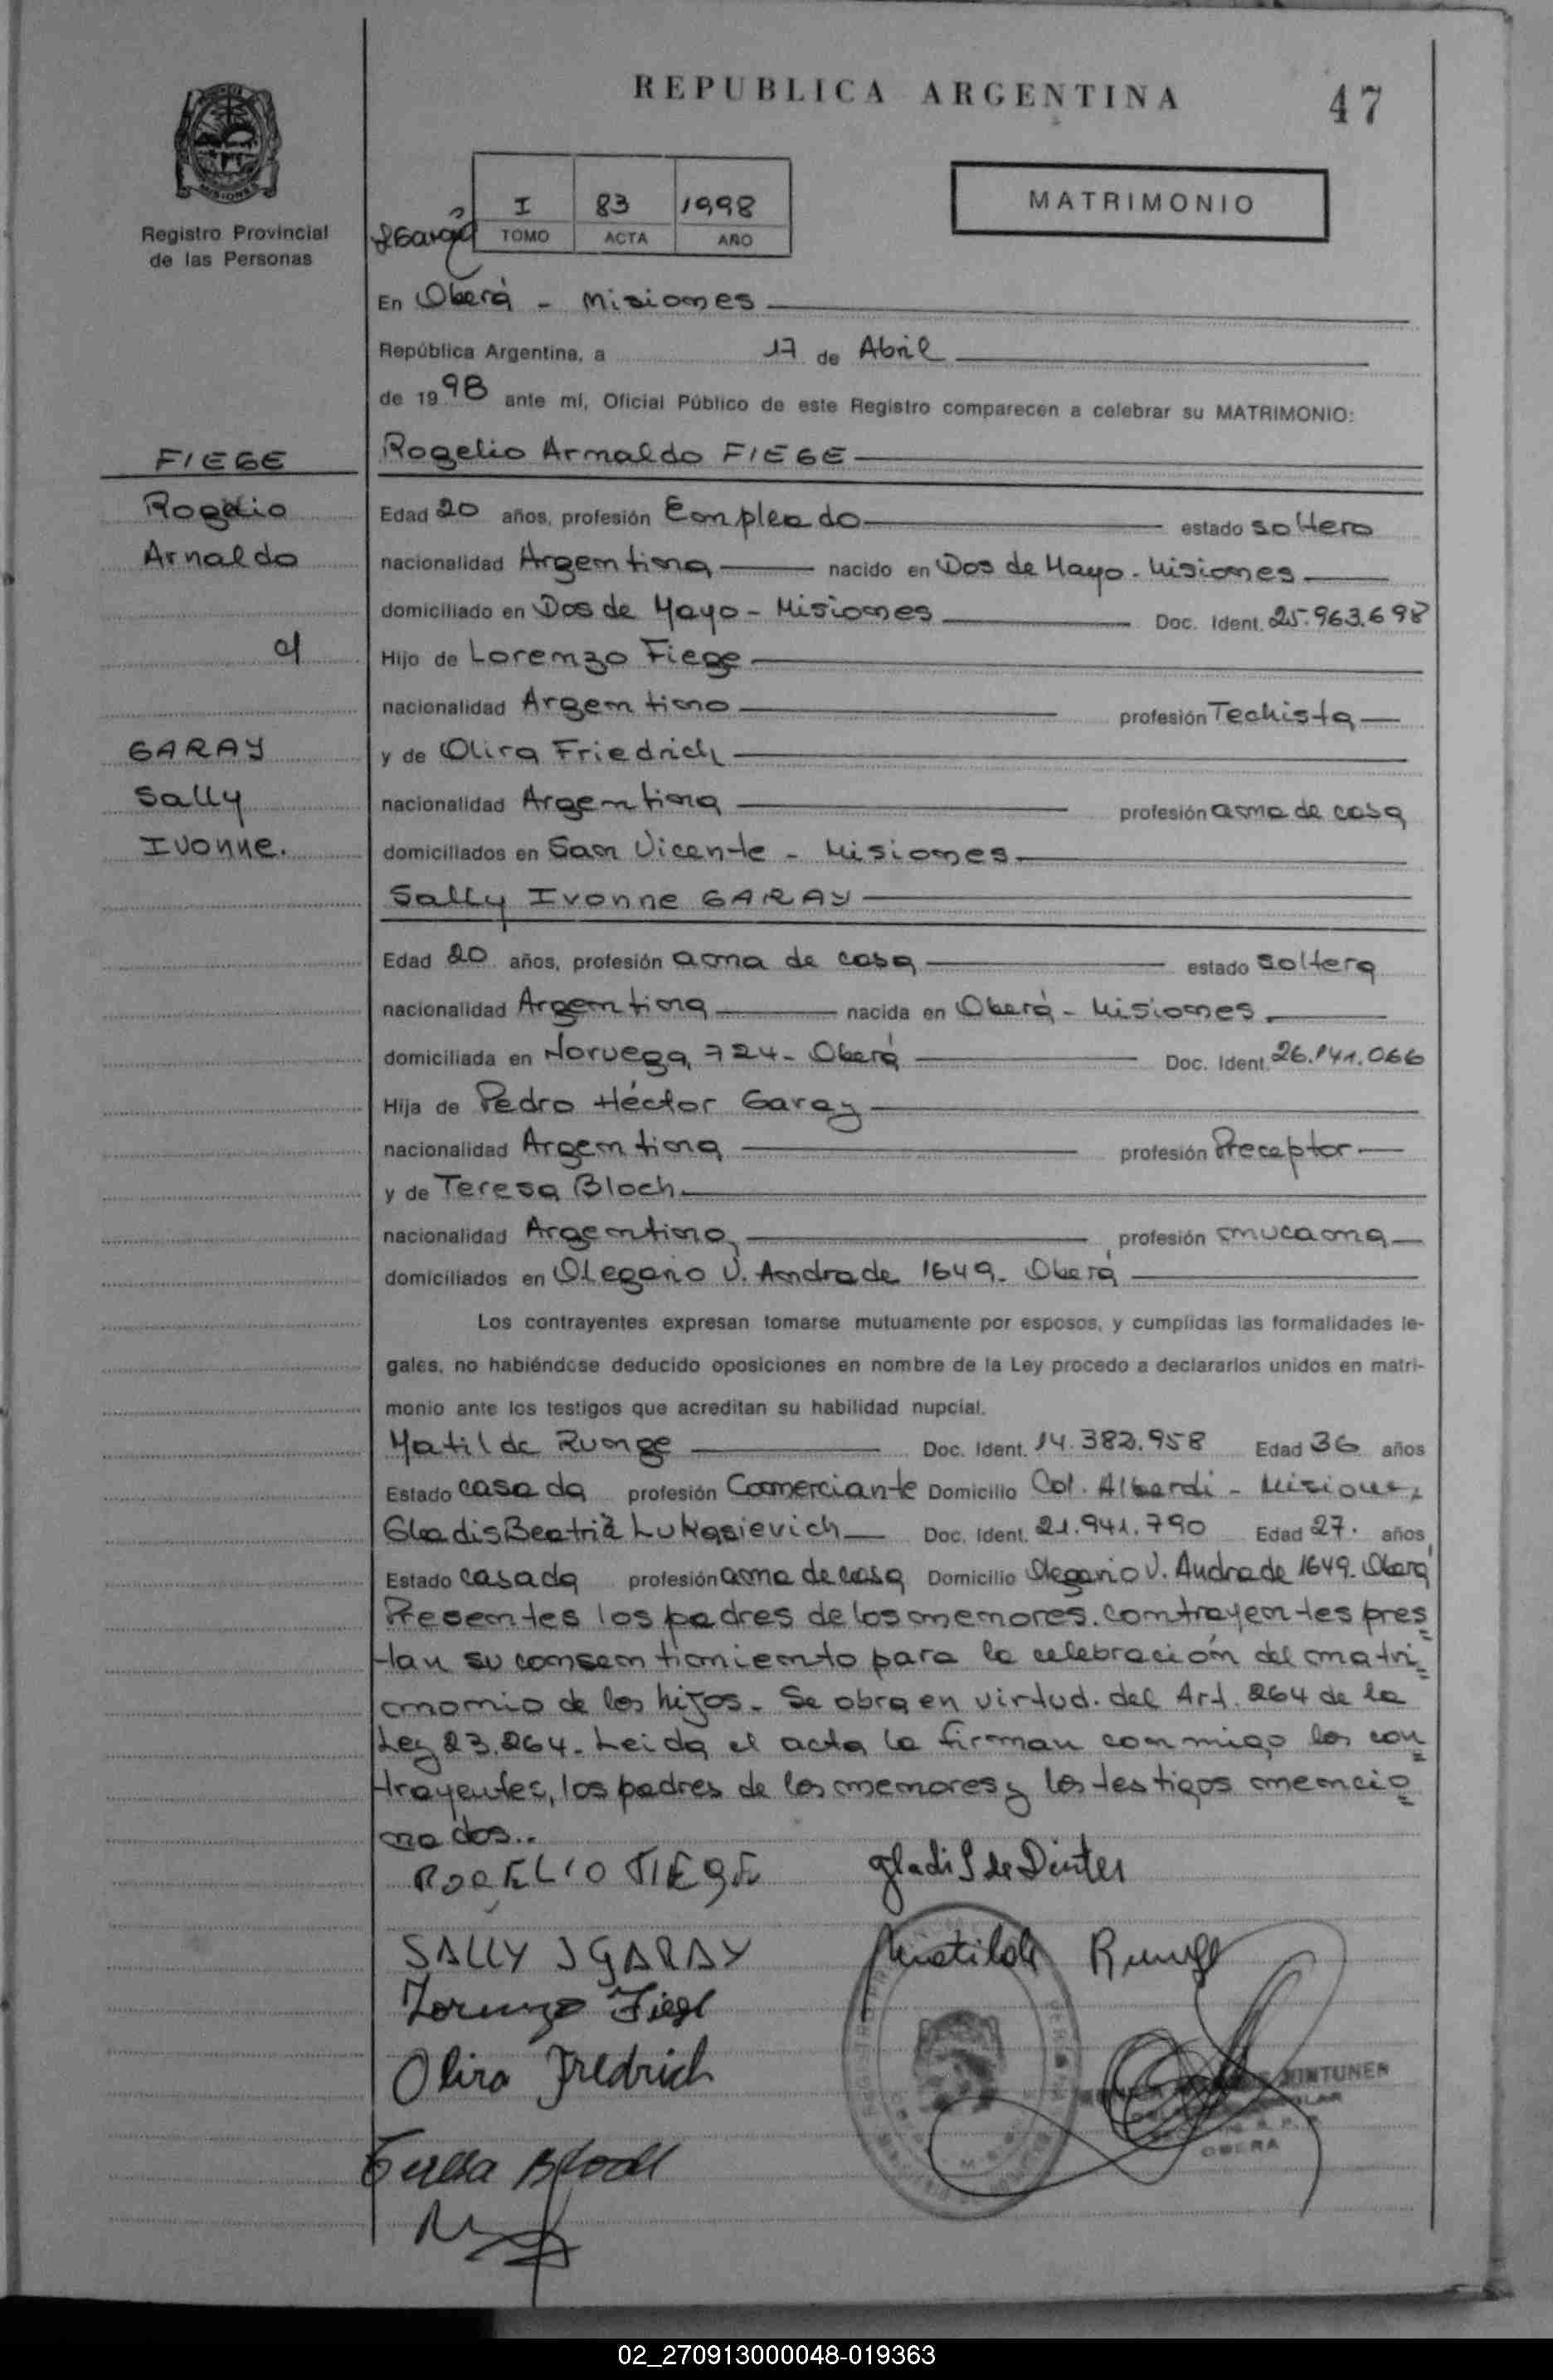 REPUBLICA ARGENTINA
47
MISIONES
Registro Provincial
de las Personas
I 83 1998
TOMO ACTA AÑO
MATRIMONIO
En Oberá - Misiones
República Argentina, a 17 de Abril
de 1998 ante mí, Oficial Público de este Registro comparecen a celebrar su MATRIMONIO:
FIEGE
Rogelio
Arnaldo
c/
GARAY
Sally
Ivonne.
Rogelio Arnaldo FIEGE
Edad 20 años, profesión Empleado estado soltero
nacionalidad Argentina nacido en Dos de Mayo - Misiones
domiciliado en Dos de Mayo - Misiones Doc. Ident. 25.963.698
Hijo de Lorenzo Fiege
nacionalidad Argentino profesión Techista
y de Olira Friedrich
nacionalidad Argentina profesión ama de casa
domiciliados en San Vicente - Misiones
Sally Ivonne GARAY
Edad 20 años, profesión ama de casa estado soltera
nacionalidad Argentina nacida en Oberá - Misiones
domiciliada en Noruega 724 - Oberá Doc. Ident. 26.141.066
Hija de Pedro Héctor Garay
nacionalidad Argentina profesión Preceptor
y de Teresa Bloch
nacionalidad Argentina, profesión mucama
domiciliados en Olegario V. Andrade 1649 - Oberá
Los contrayentes expresan tomarse mutuamente por esposos, y cumplidas las formalidades le-
gales, no habiéndose deducido oposiciones en nombre de la Ley procedo a declararlos unidos en matri-
monio ante los testigos que acreditan su habilidad nupcial.
Matilde Runge Doc. Ident. 14.382.958 Edad 36 años
Estado casada profesión Comerciante Domicilio Col. Alberdi - Misiones
Gladis Beatriz Lukasievich Doc. Ident. 21.941.790 Edad 27. años
Estado casada profesión ama de casa Domicilio Olegario V. Andrade 1649 - Oberá
Presentes los padres de los menores contrayentes pres
tan su consentimiento para la celebración del matri
monio de los hijos - Se obra en virtud del Art. 264 de la
Ley 23.264 - Leida el acta la firman conmigo los con
trayentes, los padres de los menores y los testigos mencio
nados..
ROGELIO FIEGE
gladis de Dinter
SALLY J GARAY
Matilde Runge
Lorenzo Fiege
Olira Fredrich
Teresa Bloch
OBERA
02_270913000048-019363